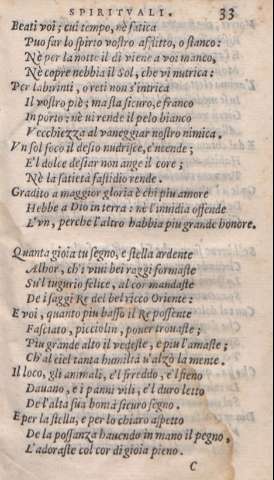 SPIRITVALI. 33
Beati voi; cui tempo, nè fatica
Puo far lo spirto vostro afflitto, o stanco:
Nè per la notte il dì viene a voi manco,
Nè copre nebbia il Sol, che vi nutrica:
Per labirinti, o reti non s'intrica
Il vostro piè; ma sta sicuro, e franco
In porto: nè ui rende il pelo bianco
Vecchiezza al vaneggiar nostro nimica.
Vn sol foco il desio nudrisce, e'ncende;
E'l dolce desiar non ange il core;
Nè la satietà fastidio rende.
Gradito a maggior gloria è chi piu amore
Hebbe a Dio in terra: nè l'inuidia offende
L'vn, perche l'altro habbia piu grande honore.
Quanta gioia tu segno, e stella ardente
Alhor, ch'i viui bei raggi formaste
Su'l tugurio felice, al cor mandaste
De i saggi Re del bel ricco Oriente:
E voi, quanto piu basso il Re possente
Fasciato, picciolin, pouer trouaste;
Piu grande alto il vedeste, e piu l'amaste;
Ch'al ciel tanta humiltà v'alzò la mente.
Il loco, gli animali, e'l freddo, e'l fieno
Dauano, e i panni vili, e'l duro letto
De l'alta sua bontà sicuro segno.
E per la stella, e per lo chiaro aspetto
De la possanza hauendo in mano il pegno,
L'adoraste col cor di gioia pieno.
C